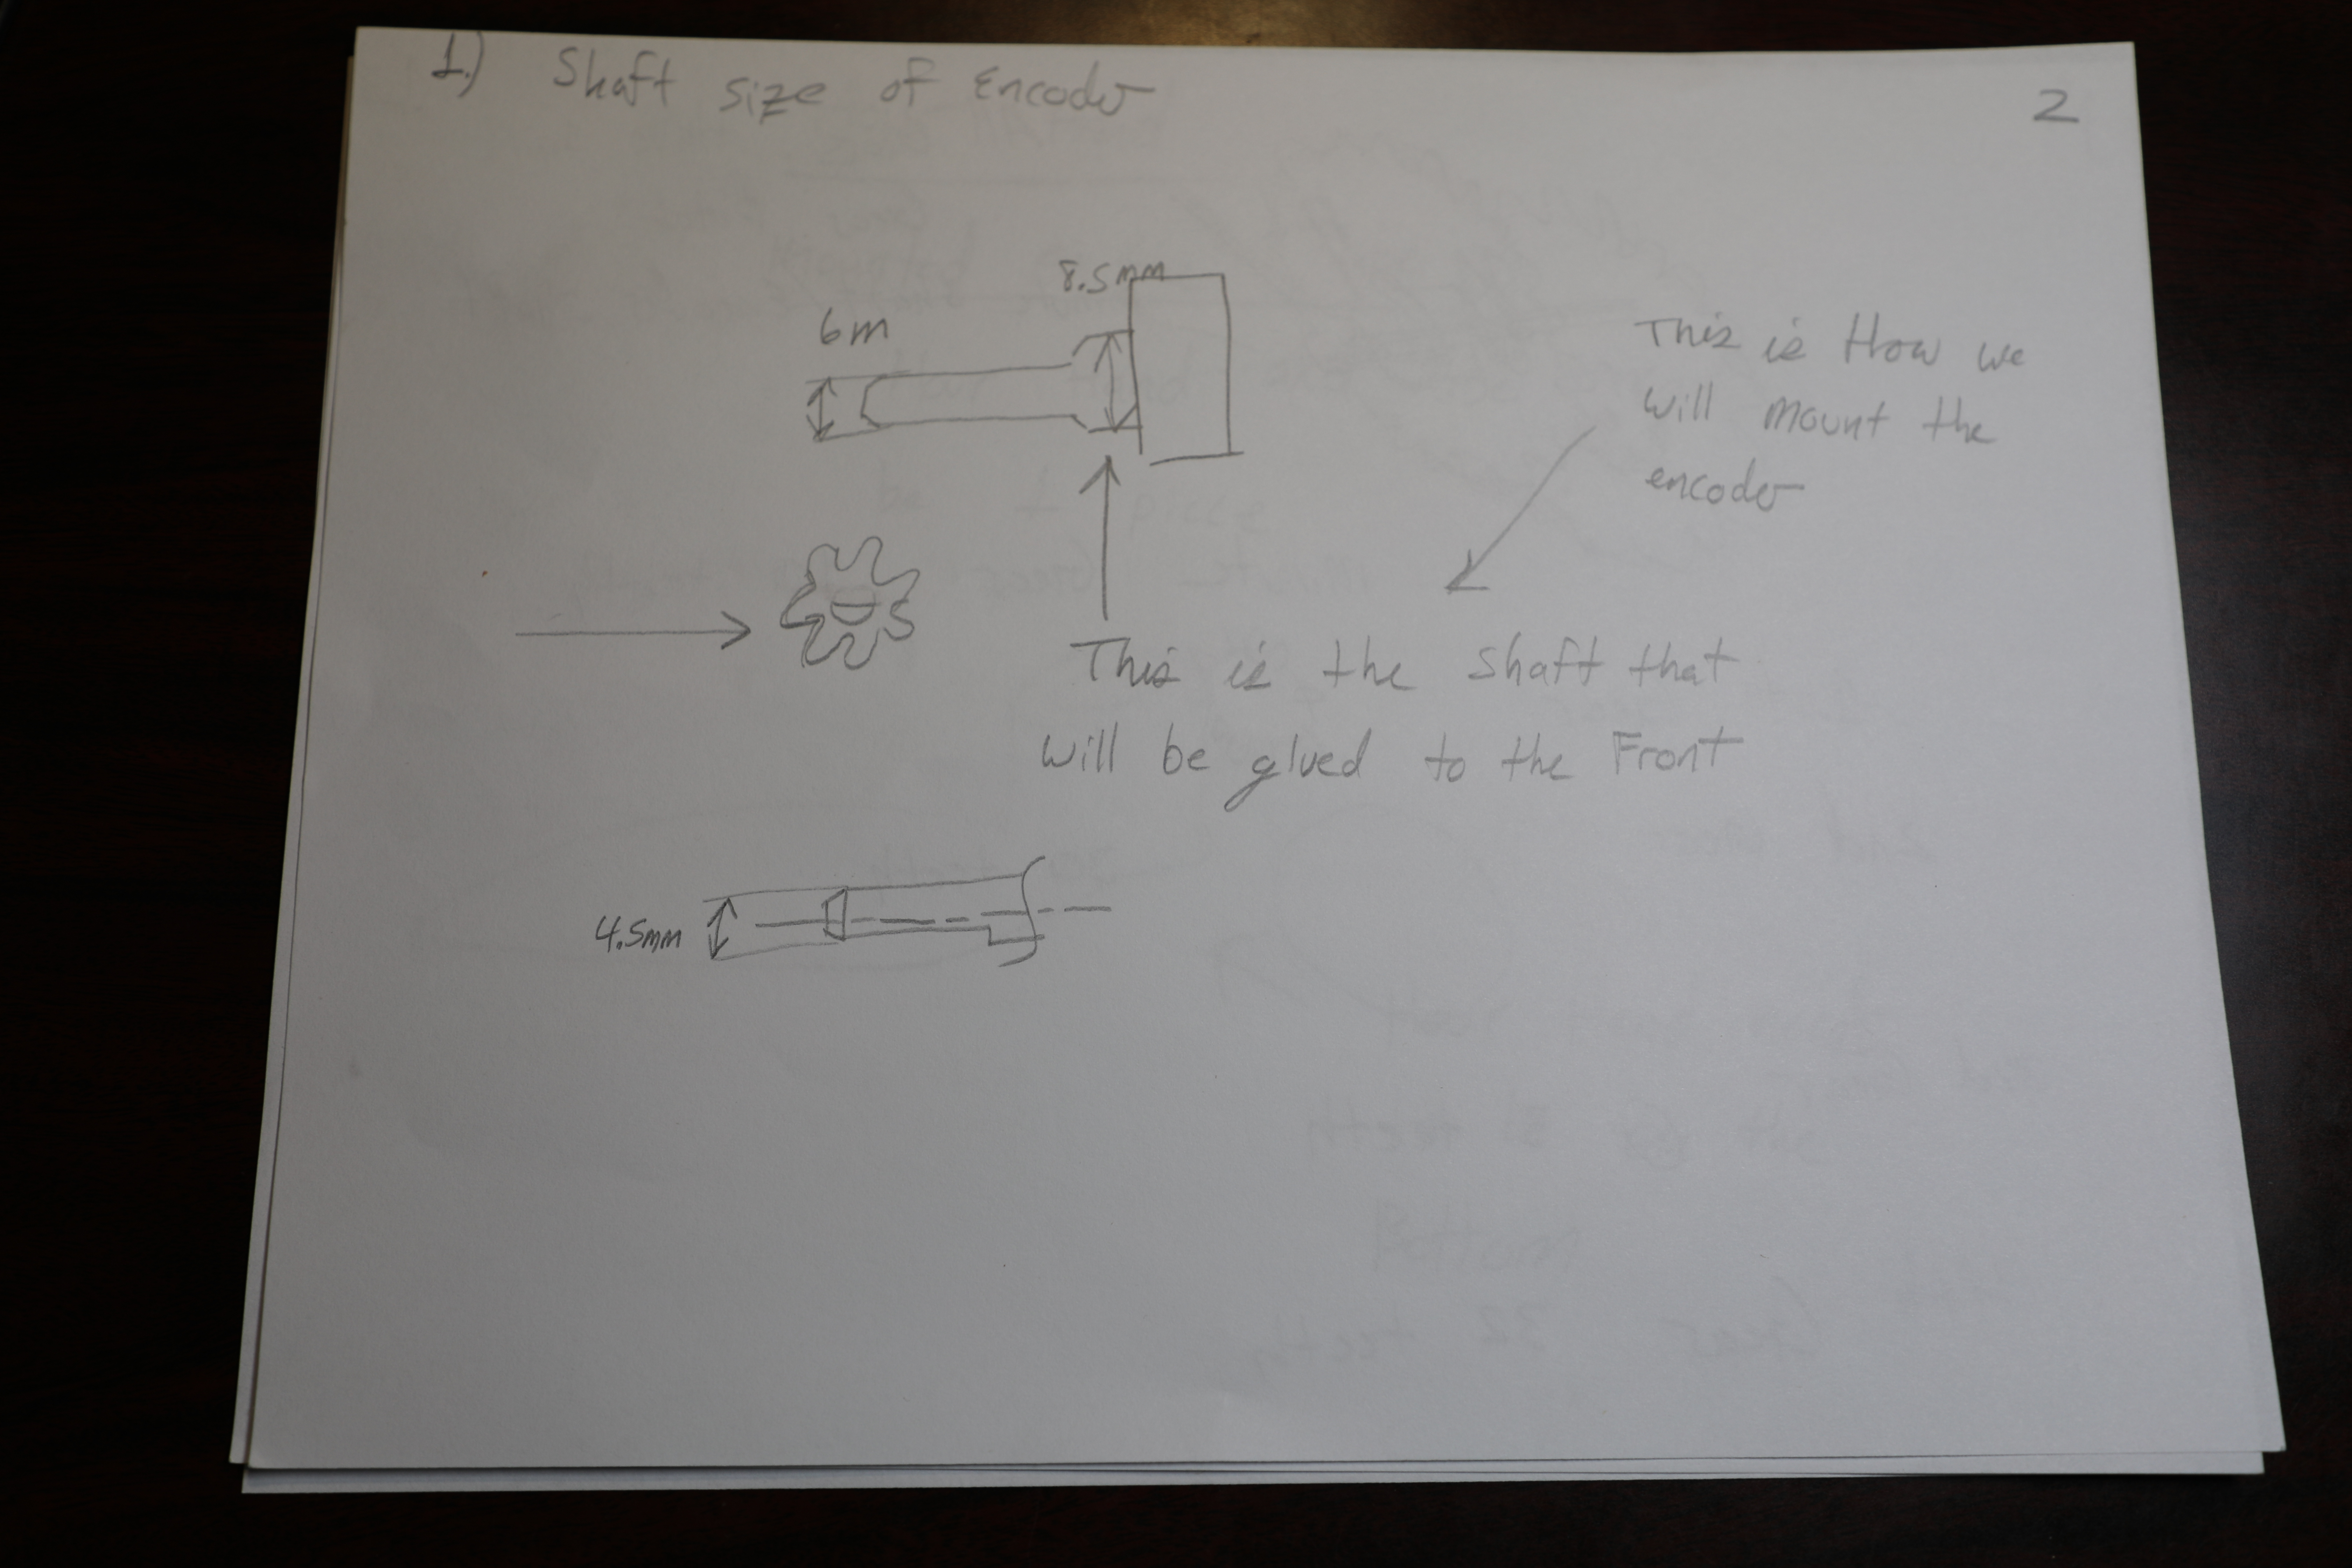 1.) Shaft size of Encoder
2
8.5mm
6m
This is How we
will mount the
encoder
This is the shaft that
will be glued to the Front
4.5mm